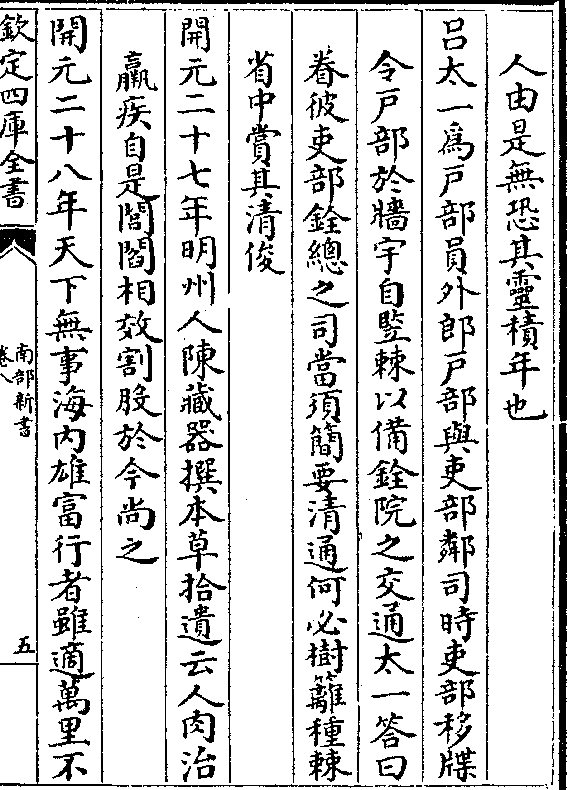 人由是無恐其靈積年也
吕太一爲戸部員外郎戸部與吏部鄰司時吏部移牒
令戸部於牆宇自竪棘以備銓院之交通太一答曰
眷彼吏部銓總之司當須簡要清通何必樹籬種棘
省中賞其清俊
開元二十七年明州人陳藏器撰本草拾遺云人肉治
羸疾自是閭閻相效割股於今尚之
開元二十八年天下無事海内雄富行者雖適萬里不
欽定四庫全書
南部新書
卷八
五